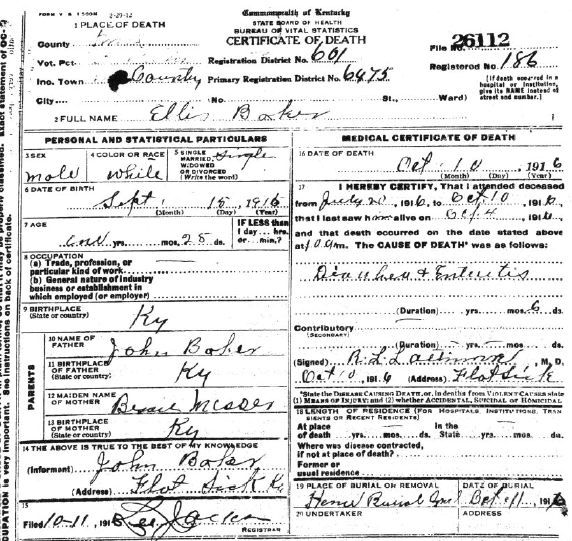 FORM V S 1500M 2-29-12
Commonwealth of Kentucky
STATE BOARD OF HEALTH
BUREAU OF VITAL STATISTICS
CERTIFICATE OF DEATH
1 PLACE OF DEATH
County
File No. 26112
Vot. Pct. Registration District No. 601 Registered No. 186
Ino. Town County Primary Registration District No. 6475
(If death occurred in a hospital or institution, give its NAME instead of street and number.)
City (No. St., Ward)
2 FULL NAME Ellis Baker
PERSONAL AND STATISTICAL PARTICULARS
3 SEX male
4 COLOR OR RACE white
5 SINGLE MARRIED WIDOWED OR DIVORCED (Write the word) Single
6 DATE OF BIRTH
Sept 15, 1916
(Month) (Day) (Year)
7 AGE
yrs. mos. 25 ds.
IF LESS than 1 day... hrs. or... min.?
8 OCCUPATION
(a) Trade, profession, or particular kind of work
(b) General nature of industry business or establishment in which employed (or employer)
9 BIRTHPLACE (State or country) Ky
PARENTS
10 NAME OF FATHER John Baker
11 BIRTHPLACE OF FATHER (State or country) Ky
12 MAIDEN NAME OF MOTHER Bessie
13 BIRTHPLACE OF MOTHER (State or country) Ky
14 THE ABOVE IS TRUE TO THE BEST OF MY KNOWLEDGE
(Informant) John Baker
(Address) Flat Lick Ky
15
Filed 10-11, 191
REGISTRAR
MEDICAL CERTIFICATE OF DEATH
16 DATE OF DEATH
Oct 10 1916
(Month) (Day) (Year)
17 I HEREBY CERTIFY, That I attended deceased
from July 20, 1916, to Oct 10, 1916,
that I last saw him alive on Oct 4, 191
and that death occurred on the date stated above
at 10 a m. The CAUSE OF DEATH* was as follows:
Diarrhea & Enteritis
(Duration) yrs. mos. 6 ds.
Contributory
(SECONDARY)
(Duration) yrs. mos. ds.
(Signed) R. L. M. D.
Oct 10, 1916 (Address) Flat Lick
*State the DISEASE CAUSING DEATH, or, in deaths from VIOLENT CAUSES state (1) MEANS OF INJURY; and (2) whether ACCIDENTAL, SUICIDAL or HOMICIDAL
18 LENGTH OF RESIDENCE (FOR HOSPITALS INSTITUTIONS, TRANSIENTS OR RECENT RESIDENTS)
At place of death yrs. mos. ds.
In the State yrs. mos. ds.
Where was disease contracted, if not at place of death?
Former or usual residence
19 PLACE OF BURIAL OR REMOVAL
Burial
DATE OF BURIAL
Oct 11, 1916
20 UNDERTAKER
ADDRESS